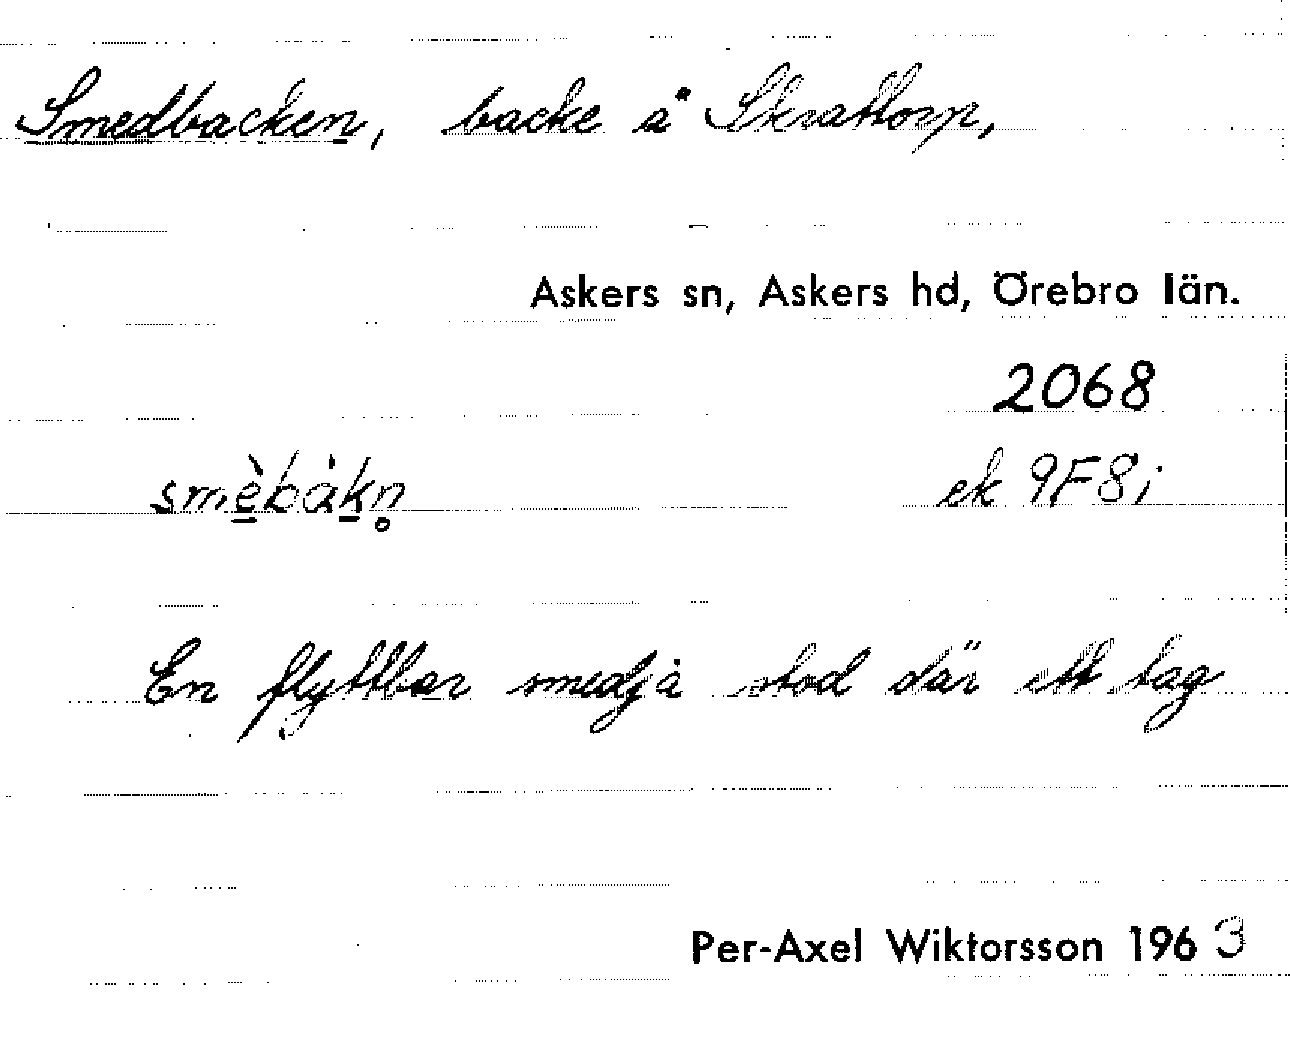 Smedbacken, backe å Skrattorp,
Askers sn, Askers hd, Örebro län.
2068
smèbákn̥ ek 9F8i
En flyttbar smedja stod där ett tag
Per-Axel Wiktorsson 1963